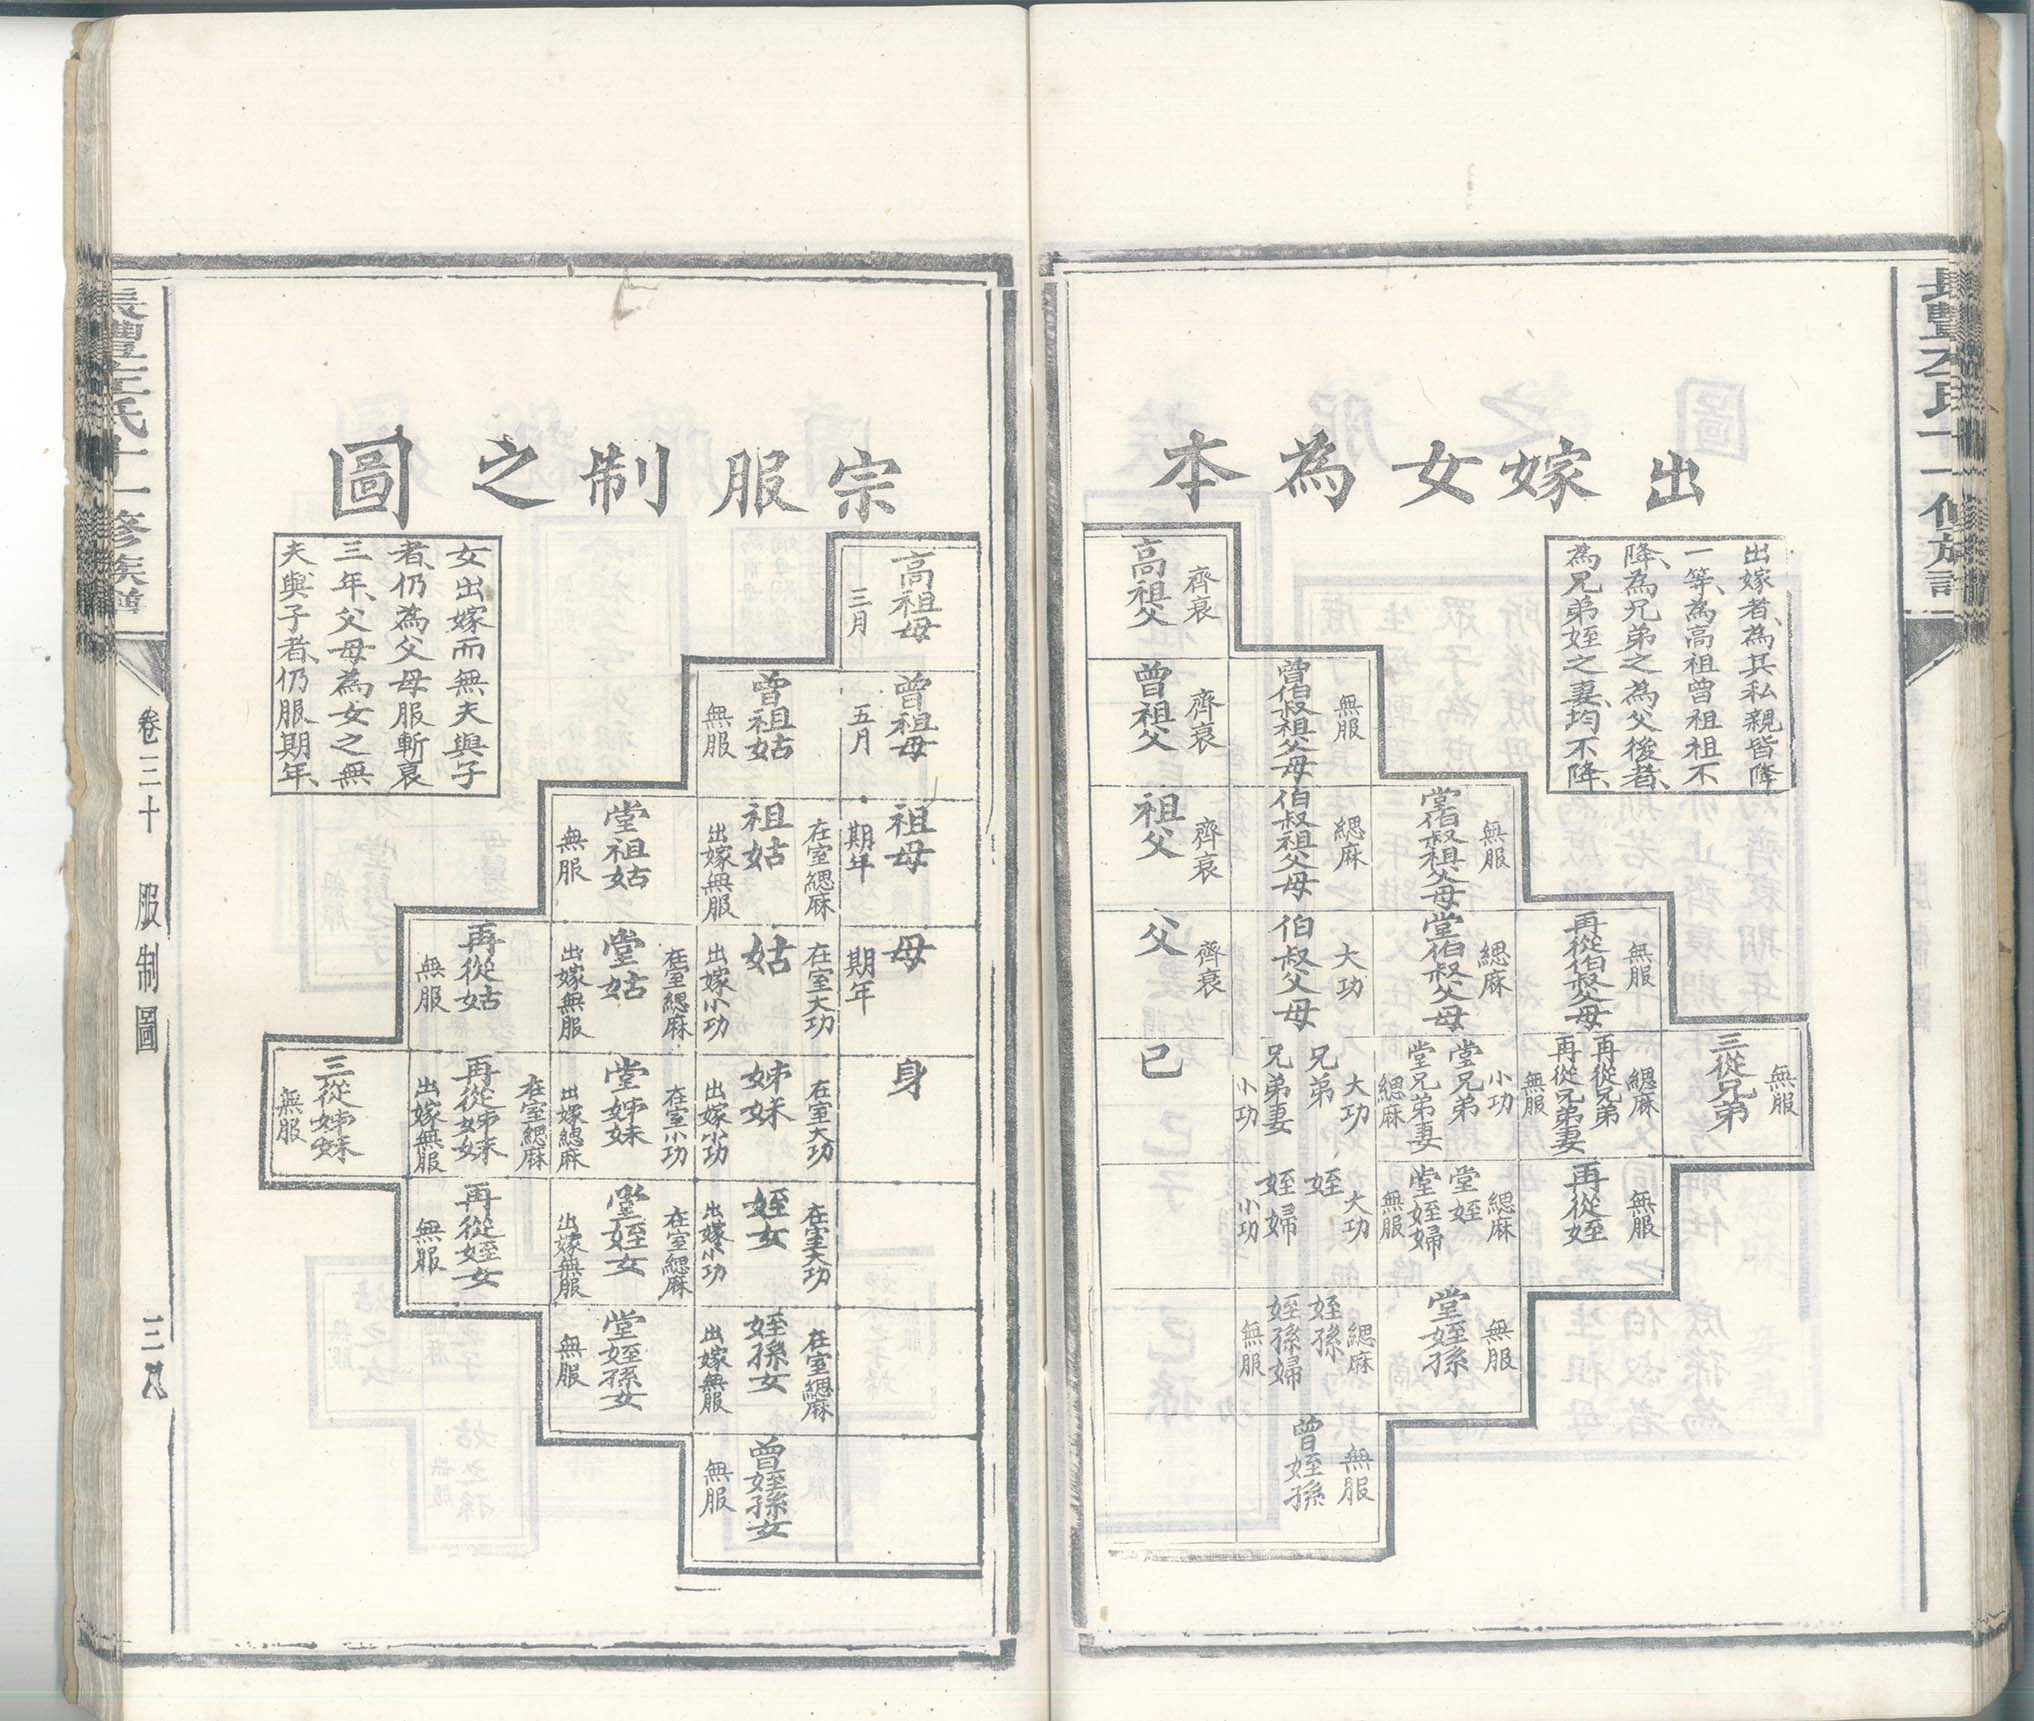 出嫁女為本
出嫁者、為其私親皆降
一等、為高祖曾祖祖不
降、為兄弟之為父後者、
為兄弟姪之妻、均不降、
三從兄弟
無服
再從伯叔父母
無服
再從兄弟
緦麻
再從兄弟妻
無服
再從姪
無服
堂伯叔祖父母
無服
堂伯叔父母
緦麻
堂兄弟
小功
堂兄弟妻
緦麻
堂姪
緦麻
堂姪婦
無服
堂姪孫
無服
曾伯叔祖父母
無服
伯叔祖父母
緦麻
伯叔父母
大功
兄弟
大功
兄弟妻
小功
姪
大功
姪婦
小功
姪孫
緦麻
姪孫婦
無服
曾姪孫
無服
高祖父
齊衰
曾祖父
齊衰
祖父
齊衰
父
齊衰
己
宗服制之圖
高祖母
三月
曾祖母
五月
祖母
期年
母
期年
身
曾祖姑
無服
祖姑
在室緦麻
出嫁無服
姑
在室大功
出嫁小功
姊妹
在室大功
出嫁小功
姪女
在室大功
出嫁小功
姪孫女
在室緦麻
出嫁無服
曾姪孫女
無服
堂祖姑
無服
堂姑
在室緦麻
出嫁無服
堂姊妹
在室小功
出嫁緦麻
堂姪女
在室緦麻
出嫁無服
堂姪孫女
無服
再從姑
無服
再從姊妹
在室緦麻
出嫁無服
再從姪女
無服
三從姊妹
無服
女出嫁而無夫與子
者、仍為父母服斬衰
三年、父母為女之無
夫與子者、仍服期年、
卷三十
服制圖
三八